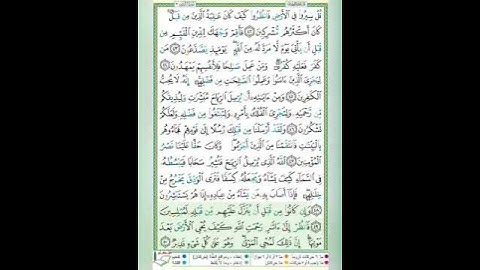 قُلْ سِيرُوا۟ فِى ٱلْأَرْضِ فَٱنظُرُوا۟ كَيْفَ كَانَ عَٰقِبَةُ ٱلَّذِينَ مِن قَبْلُ
كَانَ أَكْثَرُهُم مُّشْرِكِينَ ٤٢ فَأَقِمْ وَجْهَكَ لِلدِّينِ ٱلْقَيِّمِ مِن
قَبْلِ أَن يَأْتِىَ يَوْمٌ لَّا مَرَدَّ لَهُۥ مِنَ ٱللَّهِ يَوْمَئِذٍ يَصَّدَّعُونَ ٤٣ مَن
كَفَرَ فَعَلَيْهِ كُفْرُهُۥ وَمَنْ عَمِلَ صَٰلِحًا فَلِأَنفُسِهِمْ يَمْهَدُونَ ٤٤
لِيَجْزِىَ ٱلَّذِينَ ءَامَنُوا۟ وَعَمِلُوا۟ ٱلصَّٰلِحَٰتِ مِن فَضْلِهِۦٓ إِنَّهُۥ لَا يُحِبُّ
ٱلْكَٰفِرِينَ ٤٥ وَمِنْ ءَايَٰتِهِۦٓ أَن يُرْسِلَ ٱلرِّيَاحَ مُبَشِّرَٰتٍ وَلِيُذِيقَكُم
مِّن رَّحْمَتِهِۦ وَلِتَجْرِىَ ٱلْفُلْكُ بِأَمْرِهِۦ وَلِتَبْتَغُوا۟ مِن فَضْلِهِۦ وَلَعَلَّكُمْ
تَشْكُرُونَ ٤٦ وَلَقَدْ أَرْسَلْنَا مِن قَبْلِكَ رُسُلًا إِلَىٰ قَوْمِهِمْ فَجَآءُوهُم
بِٱلْبَيِّنَٰتِ فَٱنتَقَمْنَا مِنَ ٱلَّذِينَ أَجْرَمُوا۟ وَكَانَ حَقًّا عَلَيْنَا نَصْرُ
ٱلْمُؤْمِنِينَ ٤٧ ٱللَّهُ ٱلَّذِى يُرْسِلُ ٱلرِّيَٰحَ فَتُثِيرُ سَحَابًا فَيَبْسُطُهُۥ
فِى ٱلسَّمَآءِ كَيْفَ يَشَآءُ وَيَجْعَلُهُۥ كِسَفًا فَتَرَى ٱلْوَدْقَ يَخْرُجُ مِنْ
خِلَٰلِهِۦ فَإِذَآ أَصَابَ بِهِۦ مَن يَشَآءُ مِنْ عِبَادِهِۦٓ إِذَا هُمْ يَسْتَبْشِرُونَ
٤٨ وَإِن كَانُوا۟ مِن قَبْلِ أَن يُنَزَّلَ عَلَيْهِم مِّن قَبْلِهِۦ لَمُبْلِسِينَ
٤٩ فَٱنظُرْ إِلَىٰٓ ءَاثَٰرِ رَحْمَتِ ٱللَّهِ كَيْفَ يُحْىِ ٱلْأَرْضَ بَعْدَ
مَوْتِهَآ إِنَّ ذَٰلِكَ لَمُحْىِ ٱلْمَوْتَىٰ وَهُوَ عَلَىٰ كُلِّ شَىْءٍ قَدِيرٌ ٥٠